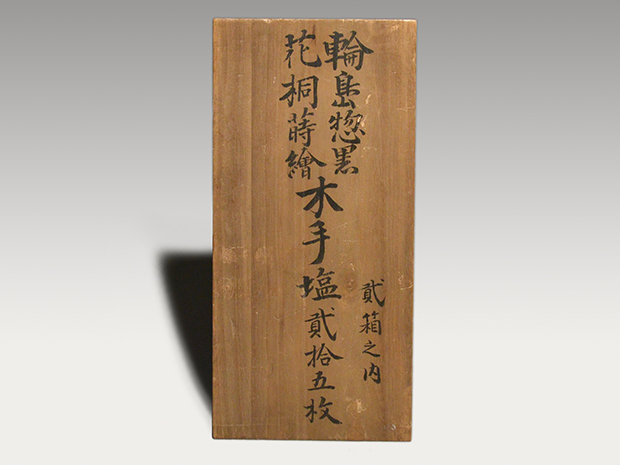 輪島惣黒
花桐蒔繪
木手塩貳拾五枚
貳箱之内